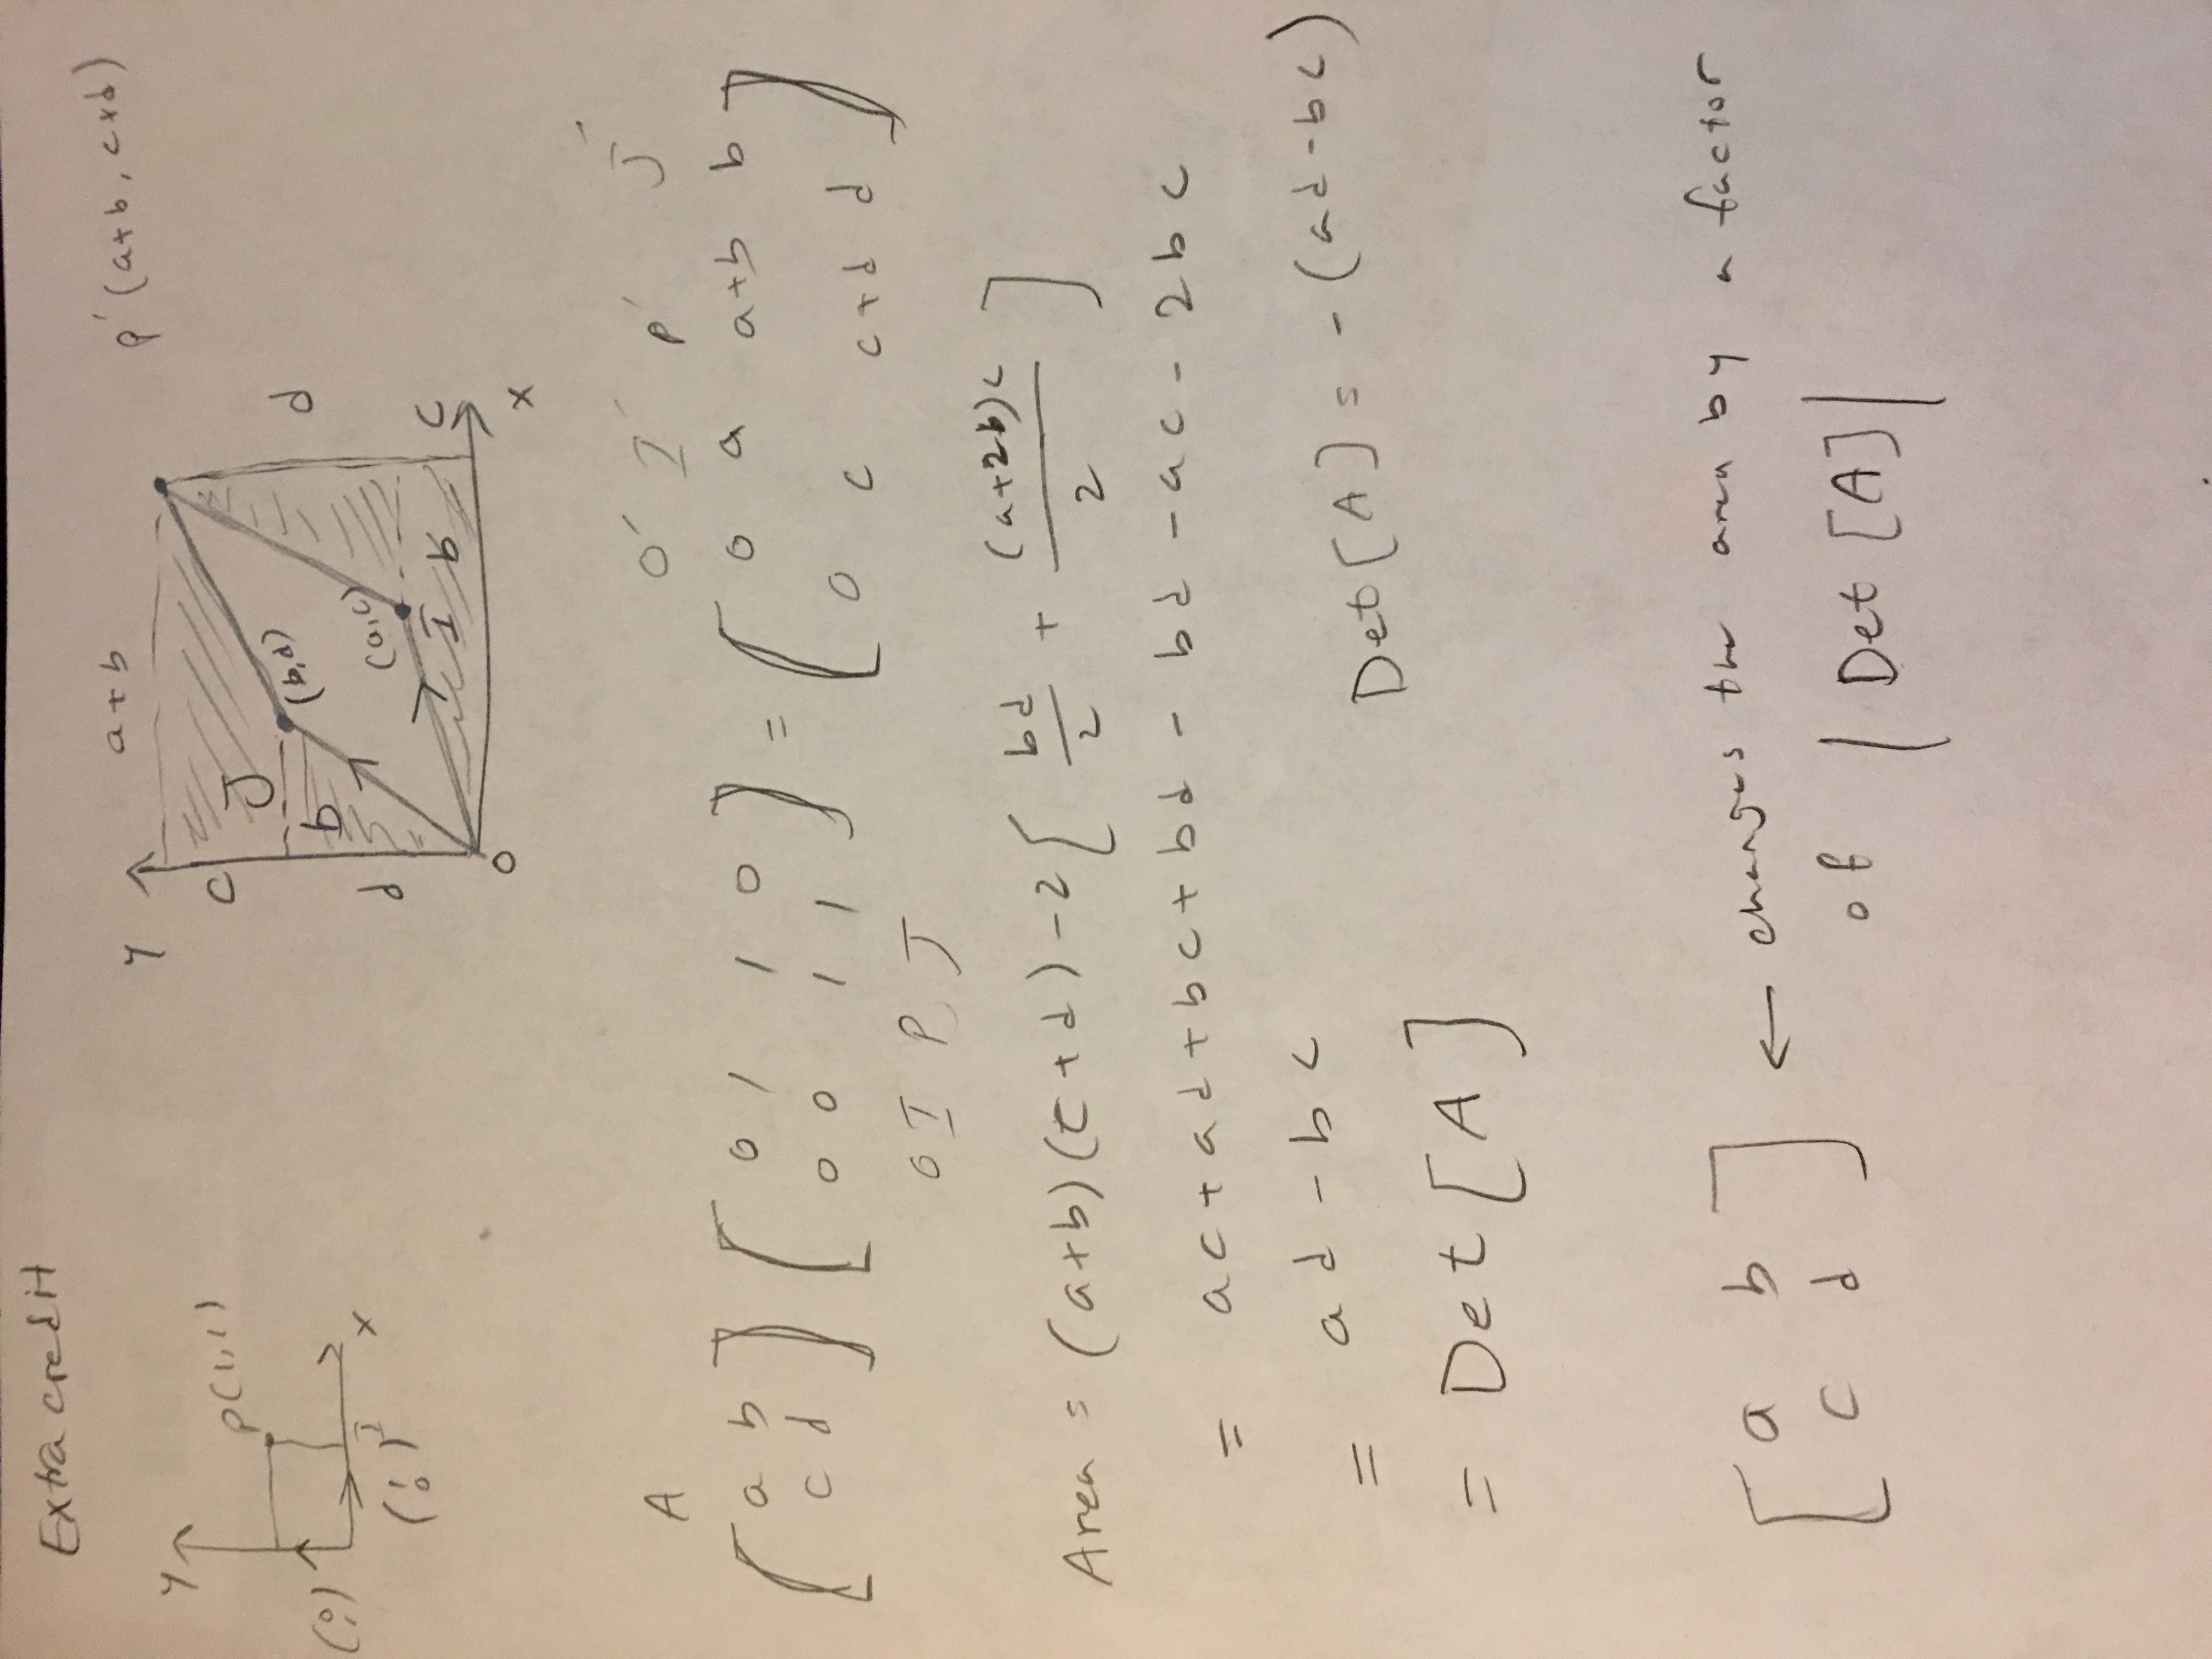 Extra credit
y
P(1,1)
(0 1)
x
(1 0) I
y
a+b
P'(a+b, c+d)
c
J
(b,d)
d
b
(a,c)
d
I b
c
O
x
A
O' I' P' J'
[a b [0 1 1 0 = [0 a a+b b
c d] 0 0 1 1] 0 c c+d d]
O I P J
Area = (a+b)(c+d) - 2[bd/2 + (a+2b)c/2]
= ac+ad+bc+bd - bd - ac - 2bc
= ad - bc
Det[A] = -(ad-bc)
= Det[A]
[a b ← changes the area by a factor
c d] of |Det[A]|